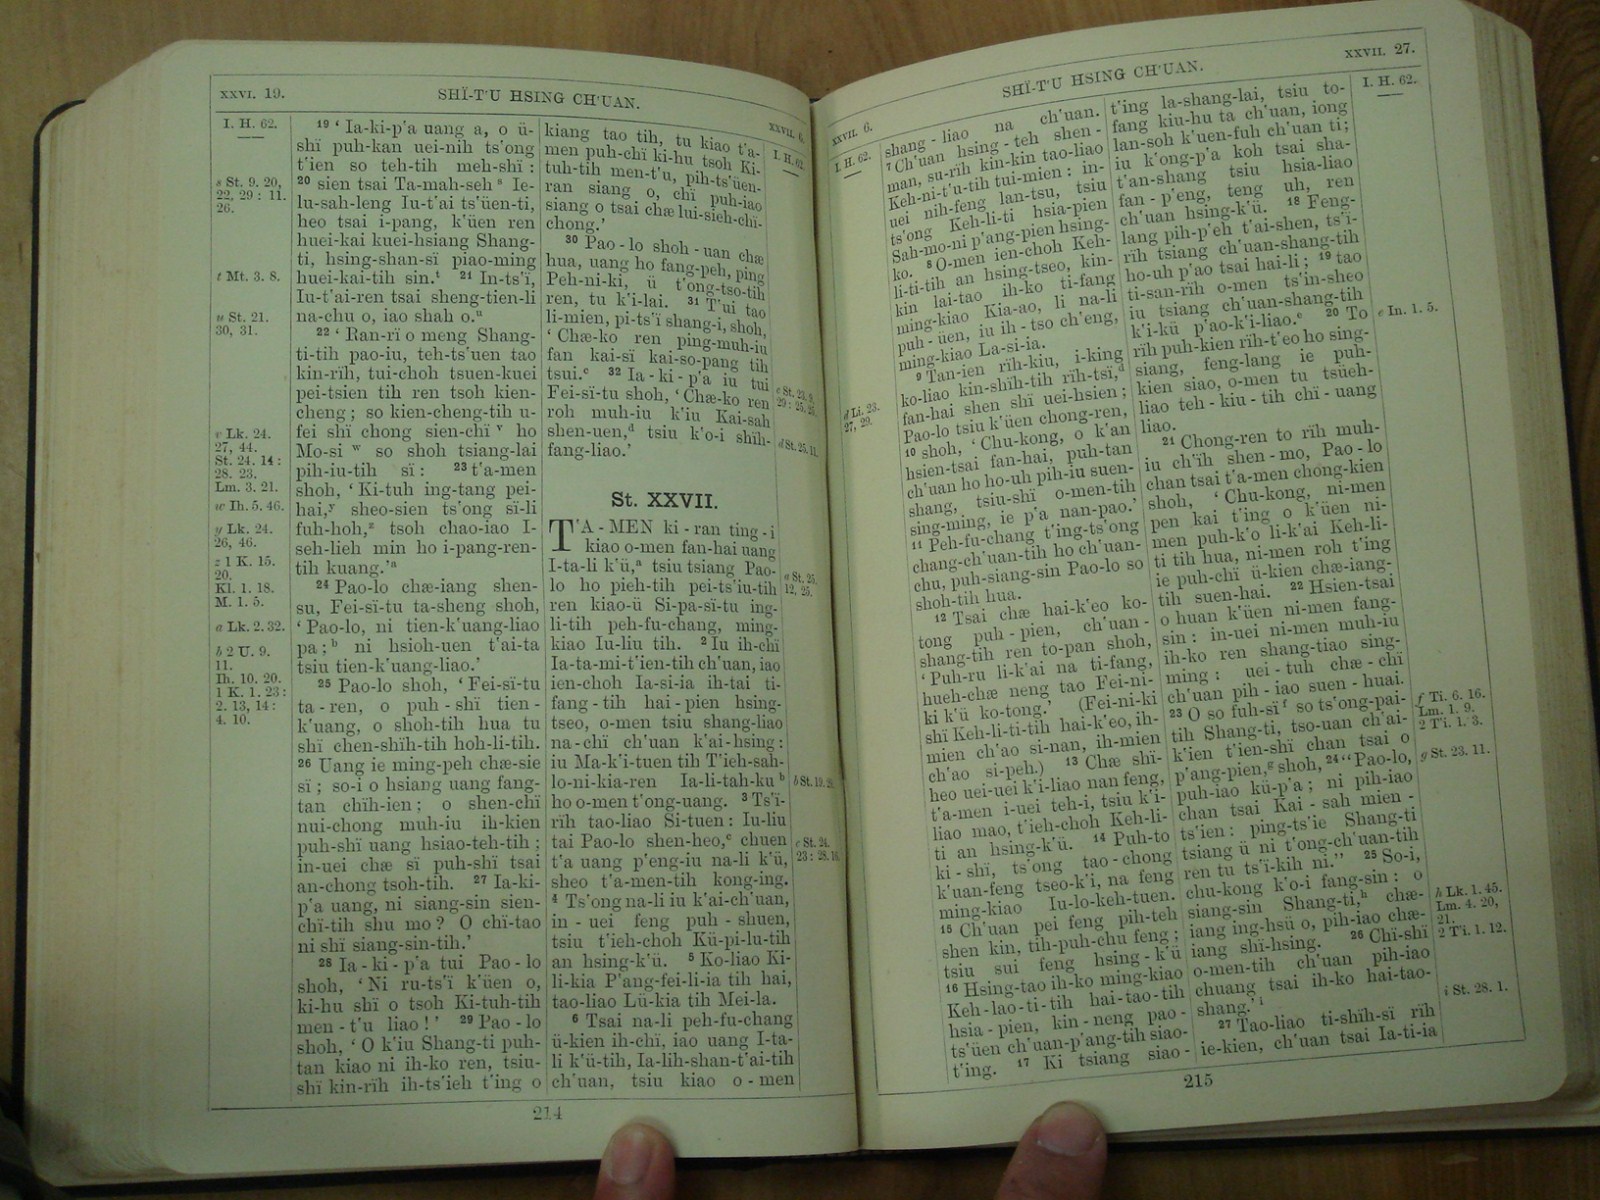 XXVI. 19.
SHÏ-T'U HSING CH'UAN.
XXVII. 6.
I. H. 62.
s St. 9. 20,
22, 29 : 11.
26.
t Mt. 3. 8.
u St. 21.
30, 31.
v Lk. 24.
27, 44.
St. 24. 14 :
28. 23.
Lm. 3. 21.
w Ih. 5. 46.
y Lk. 24.
26, 46.
z 1 K. 15.
20.
Kl. 1. 18.
M. 1. 5.
a Lk. 2. 32.
b 2 U. 9.
11.
Ih. 10. 20.
1 K. 1. 23 :
2. 13, 14 :
4. 10.
19 ‘ Ia-ki-p'a uang a, o ü-
shï puh-kan uei-nih ts'ong
t'ien so teh-tih meh-shï :
20 sien tsai Ta-mah-seh s Ie-
lu-sah-leng Iu-t'ai ts'üen-ti,
heo tsai i-pang, k'üen ren
huei-kai kuei-hsiang Shang-
ti, hsing-shan-sï piao-ming
huei-kai-tih sin.t 21 In-ts'ï,
Iu-t'ai-ren tsai sheng-tien-li
na-chu o, iao shah o.u
22 ‘ Ran-rï o meng Shang-
ti-tih pao-iu, teh-ts'uen tao
kin-rïh, tui-choh tsuen-kuei
pei-tsien tih ren tsoh kien-
cheng ; so kien-cheng-tih u-
fei shï chong sien-chï v ho
Mo-si w so shoh tsiang-lai
pih-iu-tih sï : 23 t'a-men
shoh, ‘ Ki-tuh ing-tang pei-
hai,y sheo-sien ts'ong sï-li
fuh-hoh,z tsoh chao-iao I-
seh-lieh min ho i-pang-ren-
tih kuang.’a
24 Pao-lo chæ-iang shen-
su, Fei-sï-tu ta-sheng shoh,
‘ Pao-lo, ni tien-k'uang-liao
pa ;b ni hsioh-uen t'ai-ta
tsiu tien-k'uang-liao.’
25 Pao-lo shoh, ‘ Fei-sï-tu
ta - ren, o puh - shï tien -
k'uang, o shoh-tih hua tu
shï chen-shïh-tih hoh-li-tih.
26 Uang ie ming-peh chæ-sie
sï ; so-i o hsiang uang fang-
tan chïh-ien ; o shen-chï
nui-chong muh-iu ih-kien
puh-shï uang hsiao-teh-tih ;
in-uei chæ sï puh-shï tsai
an-chong tsoh-tih. 27 Ia-ki-
p'a uang, ni siang-sin sien-
chï-tih shu mo ? O chï-tao
ni shï siang-sin-tih.’
28 Ia - ki - p'a tui Pao - lo
shoh, ‘ Ni ru-ts'ï k'üen o,
ki-hu shï o tsoh Ki-tuh-tih
men - t'u liao ! ’ 29 Pao - lo
shoh, ‘ O k'iu Shang-ti puh-
tan kiao ni ih-ko ren, tsiu-
shï kin-rïh ih-ts'ieh t'ing o
kiang tao tih, tu kiao t'a-
men puh-chï ki-hu tsoh Ki-
tuh-tih men-t'u, pih-ts'üen-
ran siang o, chï puh-iao
siang o tsai chæ lui-sieh-chï-
chong.’
30 Pao - lo shoh - uan chæ
hua, uang ho fang-peh, ping
Peh-ni-ki, ü t'ong-tso-tih
ren, tu k'i-lai. 31 T'ui tao
li-mien, pi-ts'ï shang-i, shoh,
‘ Chæ-ko ren ping-muh-iu
fan kai-sï kai-so-pang tih
tsui.c 32 Ia - ki - p'a iu tui
Fei-sï-tu shoh, ‘ Chæ-ko ren
roh muh-iu k'iu Kai-sah
shen-uen,d tsiu k'o-i shïh-
fang-liao.’
St. XXVII.
T'A - MEN ki - ran ting - i
kiao o-men fan-hai uang
I-ta-li k'ü,a tsiu tsiang Pao-
lo ho pieh-tih pei-ts'iu-tih
ren kiao-ü Si-pa-sï-tu ing-
li-tih peh-fu-chang, ming-
kiao Iu-liu tih. 2 Iu ih-chï
Ia-ta-mi-t'ien-tih ch'uan, iao
ien-choh Ia-si-ia ih-tai ti-
fang - tih hai - pien hsing-
tseo, o-men tsiu shang-liao
na - chï ch'uan k'ai-hsing :
iu Ma-k'i-tuen tih T'ieh-sah-
lo-ni-kia-ren Ia-li-tah-ku b
ho o-men t'ong-uang. 3 Ts'ï-
rïh tao-liao Si-tuen : Iu-liu
tai Pao-lo shen-heo,c chuen
t'a uang p'eng-iu na-li k'ü,
sheo t'a-men-tih kong-ing.
4 Ts'ong na-li iu k'ai-ch'uan,
in - uei feng puh - shuen,
tsiu t'ieh-choh Kü-pi-lu-tih
an hsing-k'ü. 5 Ko-liao Ki-
li-kia P'ang-fei-li-ia tih hai,
tao-liao Lü-kia tih Mei-la.
6 Tsai na-li peh-fu-chang
ü-kien ih-chï, iao uang I-ta-
li k'ü-tih, Ia-lih-shan-t'ai-tih
ch'uan, tsiu kiao o - men
I. H. 62.
c St. 23. 9,
29 : 25. 25.
d St. 25. 11.
a St. 25.
12, 25.
b St. 19. 29.
c St. 24.
23 : 28. 16.
214
XXVII. 6.
SHÏ-T'U HSING CH'UAN.
XXVII. 27.
I. H. 62.
d Li. 23.
27, 29.
shang - liao na ch'uan.
7 Ch'uan hsing - teh shen -
man, su-rïh kin-kin tao-liao
Keh-ni-t'u-tih tui-mien : in-
uei nih-feng lan-tsu, tsiu
ts'ong Keh-li-ti hsia-pien
Sah-mo-ni p'ang-pien hsing-
ko. 8 O-men ien-choh Keh-
li-ti-tih an hsing-tseo, kin-
kin lai-tao ih-ko ti-fang
ming-kiao Kia-ao, li na-li
puh - üen, iu ih - tso ch'eng,
ming-kiao La-si-ia.
9 Tan-ien rïh-kiu, i-king
ko-liao kin-shïh-tih rïh-tsï,d
fan-hai shen shï uei-hsien ;
Pao-lo tsiu k'üen chong-ren,
10 shoh, ‘ Chu-kong, o k'an
hsien-tsai fan-hai, puh-tan
ch'uan ho ho-uh pih-iu suen-
shang, tsiu-shï o-men-tih
sing-ming, ie p'a nan-pao.’
11 Peh-fu-chang t'ing-ts'ong
chang-ch'uan-tih ho ch'uan-
chu, puh-siang-sin Pao-lo so
shoh-tih hua.
12 Tsai chæ hai-k'eo ko-
tong puh - pien, ch'uan -
shang-tih ren to-pan shoh,
‘ Puh-ru li-k'ai na ti-fang,
hueh-chæ neng tao Fei-ni-
ki k'ü ko-tong.’ (Fei-ni-ki
shï Keh-li-ti-tih hai-k'eo, ih-
mien ch'ao si-nan, ih-mien
ch'ao si-peh.) 13 Chæ shï-
heo uei-uei k'i-liao nan feng,
t'a-men i-uei teh-i, tsiu k'i-
liao mao, t'ieh-choh Keh-li-
ti an hsing-k'ü. 14 Puh-to
ki - shï, ts'ong tao - chong
k'uan-feng tseo-k'i, na feng
ming-kiao Iu-lo-keh-tuen.
15 Ch'uan pei feng pih-teh
shen kin, tih-puh-chu feng ;
tsiu sui feng hsing - k'ü
16 Hsing-tao ih-ko ming-kiao
Keh-lao-ti-tih hai-tao-tih
hsia - pien, kin - neng pao -
ts'üen ch'uan-p'ang-tih siao-
t'ing. 17 Ki tsiang siao -
t'ing la-shang-lai, tsiu to-
fang kiu-hu ta ch'uan, iong
lan-soh k'uen-fuh ch'uan ti ;
iu k'ong-p'a koh tsai sha-
t'an-shang tsiu hsia-liao
fan - p'eng, teng uh, ren
ch'uan hsing-k'ü. 18 Feng-
lang pih-p'eh t'ai-shen, ts'ï-
rïh tsiang ch'uan-shang-tih
ho-uh p'ao tsai hai-li ; 19 tao
ti-san-rïh o-men ts'in-sheo
iu tsiang ch'uan-shang-tih
k'i-kü p'ao-k'i-liao.e 20 To
rïh puh-kien rïh-t'eo ho sing-
siang, feng-lang ie puh-
kien siao, o-men tu tsüeh-
liao teh - kiu - tih chï - uang
liao.
21 Chong-ren to rïh muh-
iu ch'ïh shen - mo, Pao - lo
chan tsai t'a-men chong-kien
shoh, ‘ Chu-kong, ni-men
pen kai t'ing o k'üen ni-
men puh-k'o li-k'ai Keh-li-
ti tih hua, ni-men roh t'ing
ie puh-chï ü-kien chæ-iang-
tih suen-hai. 22 Hsien-tsai
o huan k'üen ni-men fang-
sin : in-uei ni-men muh-iu
ih-ko ren shang-tiao sing-
ming : uei - tuh chæ - chï
ch'uan pih - iao suen - huai.
23 O so fuh-sïf so ts'ong-pai-
tih Shang-ti, tso-uan ch'ai-
k'ien t'ien-shï chan tsai o
p'ang-pien,g shoh, 24 “ Pao-lo,
puh-iao kü-p'a ; ni pih-iao
chan tsai Kai - sah mien -
ts'ien : ping-ts'ie Shang-ti
tsiang ü ni t'ong-ch'uan-tih
ren tu ts'ï-kih ni.” 25 So-i,
chu-kong k'o-i fang-sin : o
siang-sin Shang-ti,h chæ-
iang ing-hsü o, pih-iao chæ-
iang shï-hsing. 26 Chï-shï
o-men-tih ch'uan pih-iao
chuang tsai ih-ko hai-tao-
shang.’ i
27 Tao-liao ti-shïh-sï rïh
ie-kien, ch'uan tsai Ia-ti-ia
I. H. 62.
e In. 1. 5.
f Ti. 6. 16.
Lm. 1. 9.
2 T'i. 1. 3.
g St. 23. 11.
h Lk. 1. 45.
Lm. 4. 20,
21.
2 T'i. 1. 12.
i St. 28. 1.
215